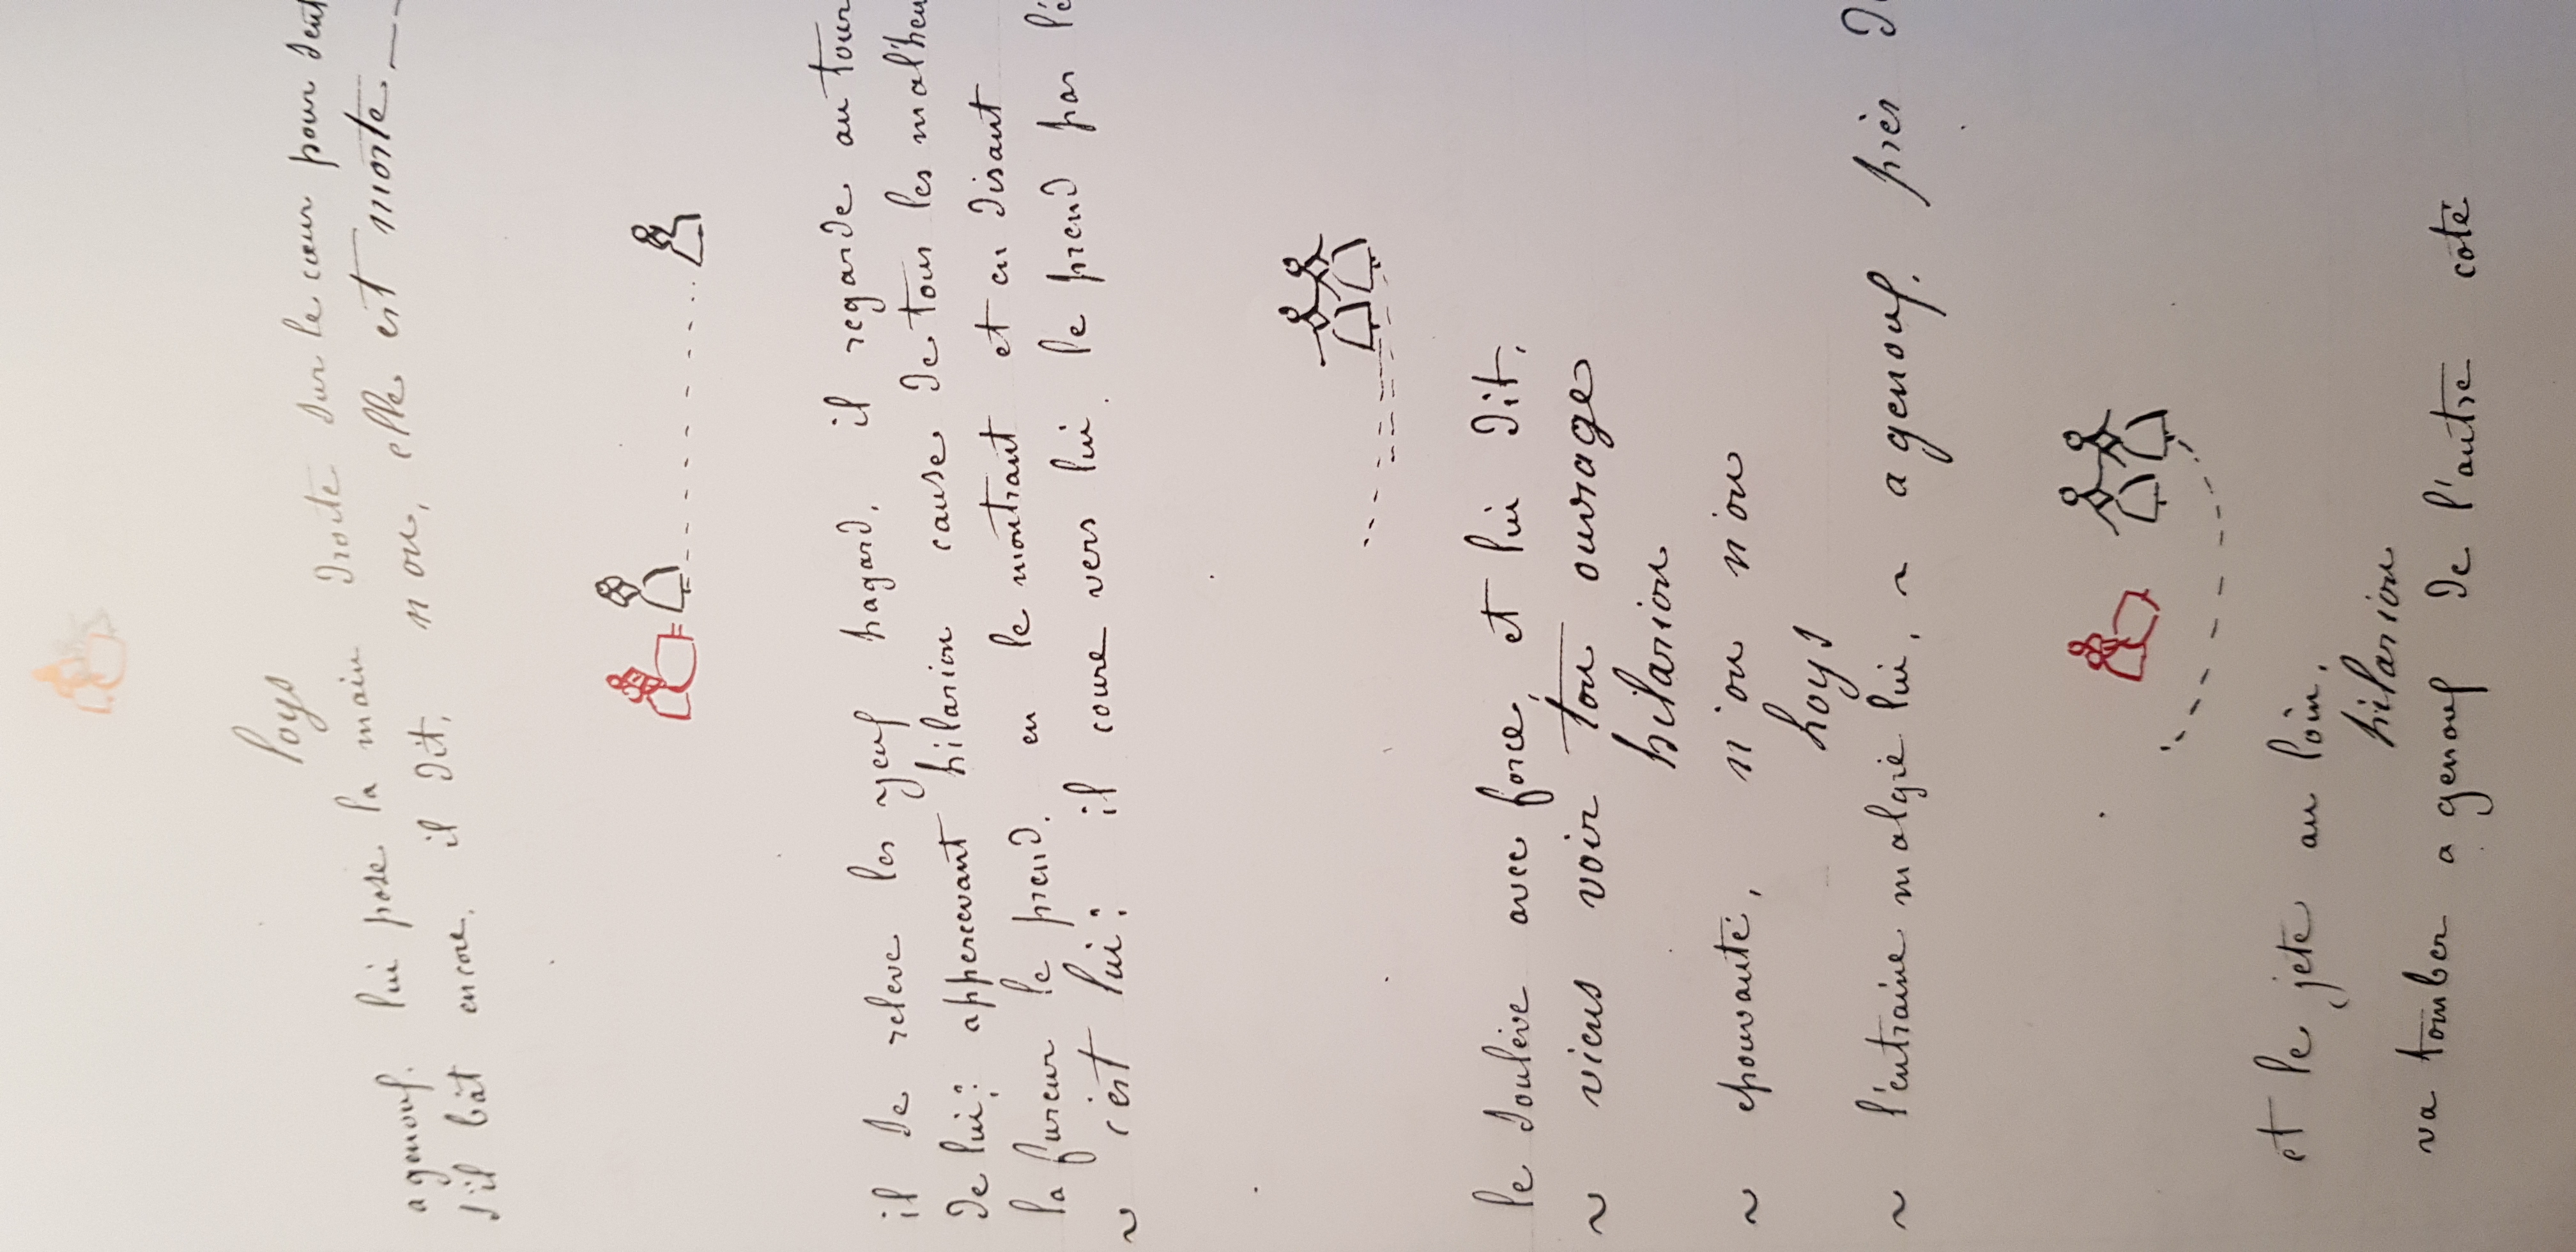 loys
a genoux. lui pose la main droite sur le cœur pour sent
s'il bât encore, il dit, non, elle est morte
il se releve les yeux hagard, il regarde au tour
de lui; appercevant hilarion cause de tous les mal'heu
la fureur le prend. en le montrant et en disant
~ c'est lui; il coure vers lui. le prend par l'é
le soulève avec force, et lui dit,
~ viens voir ton ouvrage
hilarion
~ epouvanté, n'on n'on
Loys
~ l'entraine malgré lui, ~ a genoux. près d
et le jete au loin.
hilarion
va tomber a genoux de l'autre coté